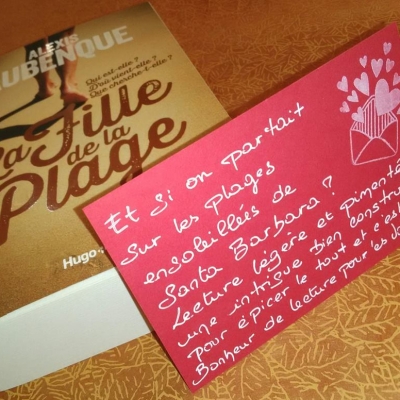 ALEXIS
AUBENQUE
Qui est-elle ?
D'où vient-elle ?
Que cherche-t-elle ?
La Fille
de la
Plage
Hugo
Et si on partait
sur les plages
ensoleillées de
Santa Barbara ?
Lecture légère et pimentée
une intrigue bien
pour épicer le tout et c'est
Bonheur de lecture pour les